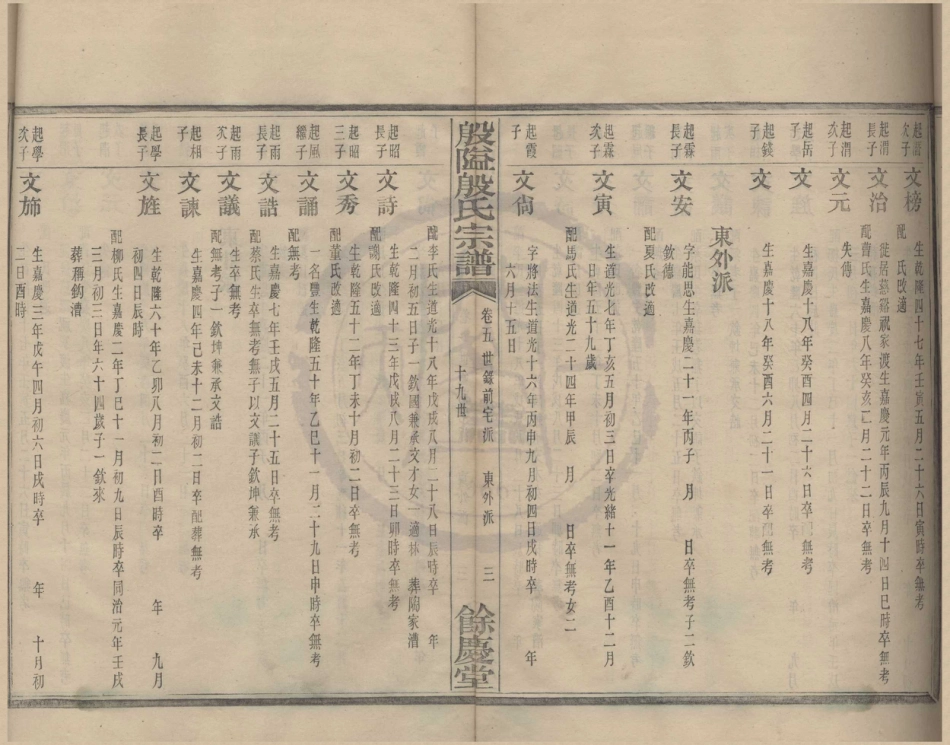 起渭次子
文榜
生乾隆四十七年壬寅五月二十六日寅時卒無考
配 氏改適
起渭長子
文治
徙居蔡谿祝家渡生嘉慶元年丙辰九月十四日巳時卒無考
配曹氏生嘉慶八年癸亥二月二十二日卒無考
起渭次子
文元
失傳
起岳子
文
生嘉慶十八年癸酉四月二十六日卒無考
起錢子
文
生嘉慶十八年癸酉六月二十一日卒配無考
東外派
起霖長子
文安
字能思生嘉慶二十一年丙子 月 日卒無考子二欽
欽德
配夏氏改適
起霖次子
文寅
生道光七年丁亥五月初三日卒光緒十一年乙酉十二月
日年五十九歲
配馬氏生道光二十四年甲辰 月 日卒無考女二
起霞子
文尙
字將法生道光十六年丙申九月初四日戌時卒 年
六月十五日
殷隘殷氏宗譜
卷五世錄前宅派 東外派 三
十九世
餘慶堂
配李氏生道光十八年戊戌八月二十八日辰時卒 年
二月初五日子一欽國兼承文才女一適林 葬陶家漕
起昭長子
文詩
生乾隆四十三年戊戌八月二十三日卯時卒無考
配謝氏改適
起昭三子
文秀
生乾隆五十二年丁未十月初二日卒無考
配董氏改適
起風繼子
文誦
一名豐生乾隆五十年乙巳十一月二十九日申時卒無考
配無考
起雨長子
文誥
生嘉慶七年壬戌五月二十五日卒無考
配蔡氏生卒無考無子以文議子欽坤兼承
起雨次子
文議
生卒無考
配無考子一欽坤兼承文誥
起相子
文諫
生嘉慶四年己未十二月初二日卒配葬無考
起學長子
文旌
生乾隆六十年乙卯八月初二日酉時卒 年 九月
初四日辰時
配柳氏生嘉慶二年丁巳十一月初九日辰時卒同治元年壬戌
三月初三日年六十四歲子一欽來
葬稱鈎漕
起學次子
文斾
生嘉慶三年戊午四月初六日戌時卒 年 十月初
二日酉時